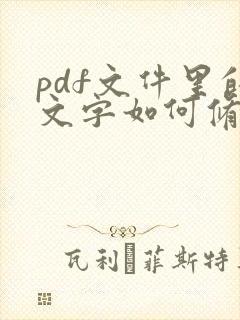 pdf文件里的
文字如何修
瓦利 菲斯特